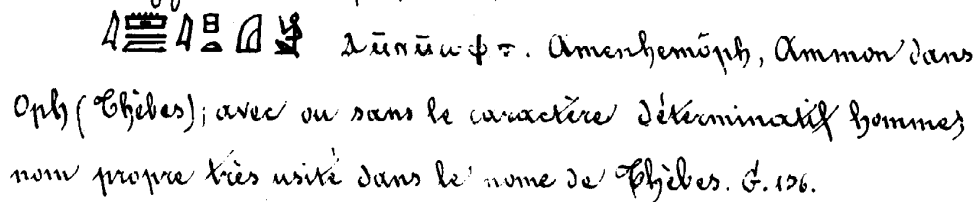 Amenhemôph, Ammon dans
Oph (Thèbes); avec ou sans le caractère déterminatif homme;
nom propre très usité dans le nome de Thèbes. G. 136.